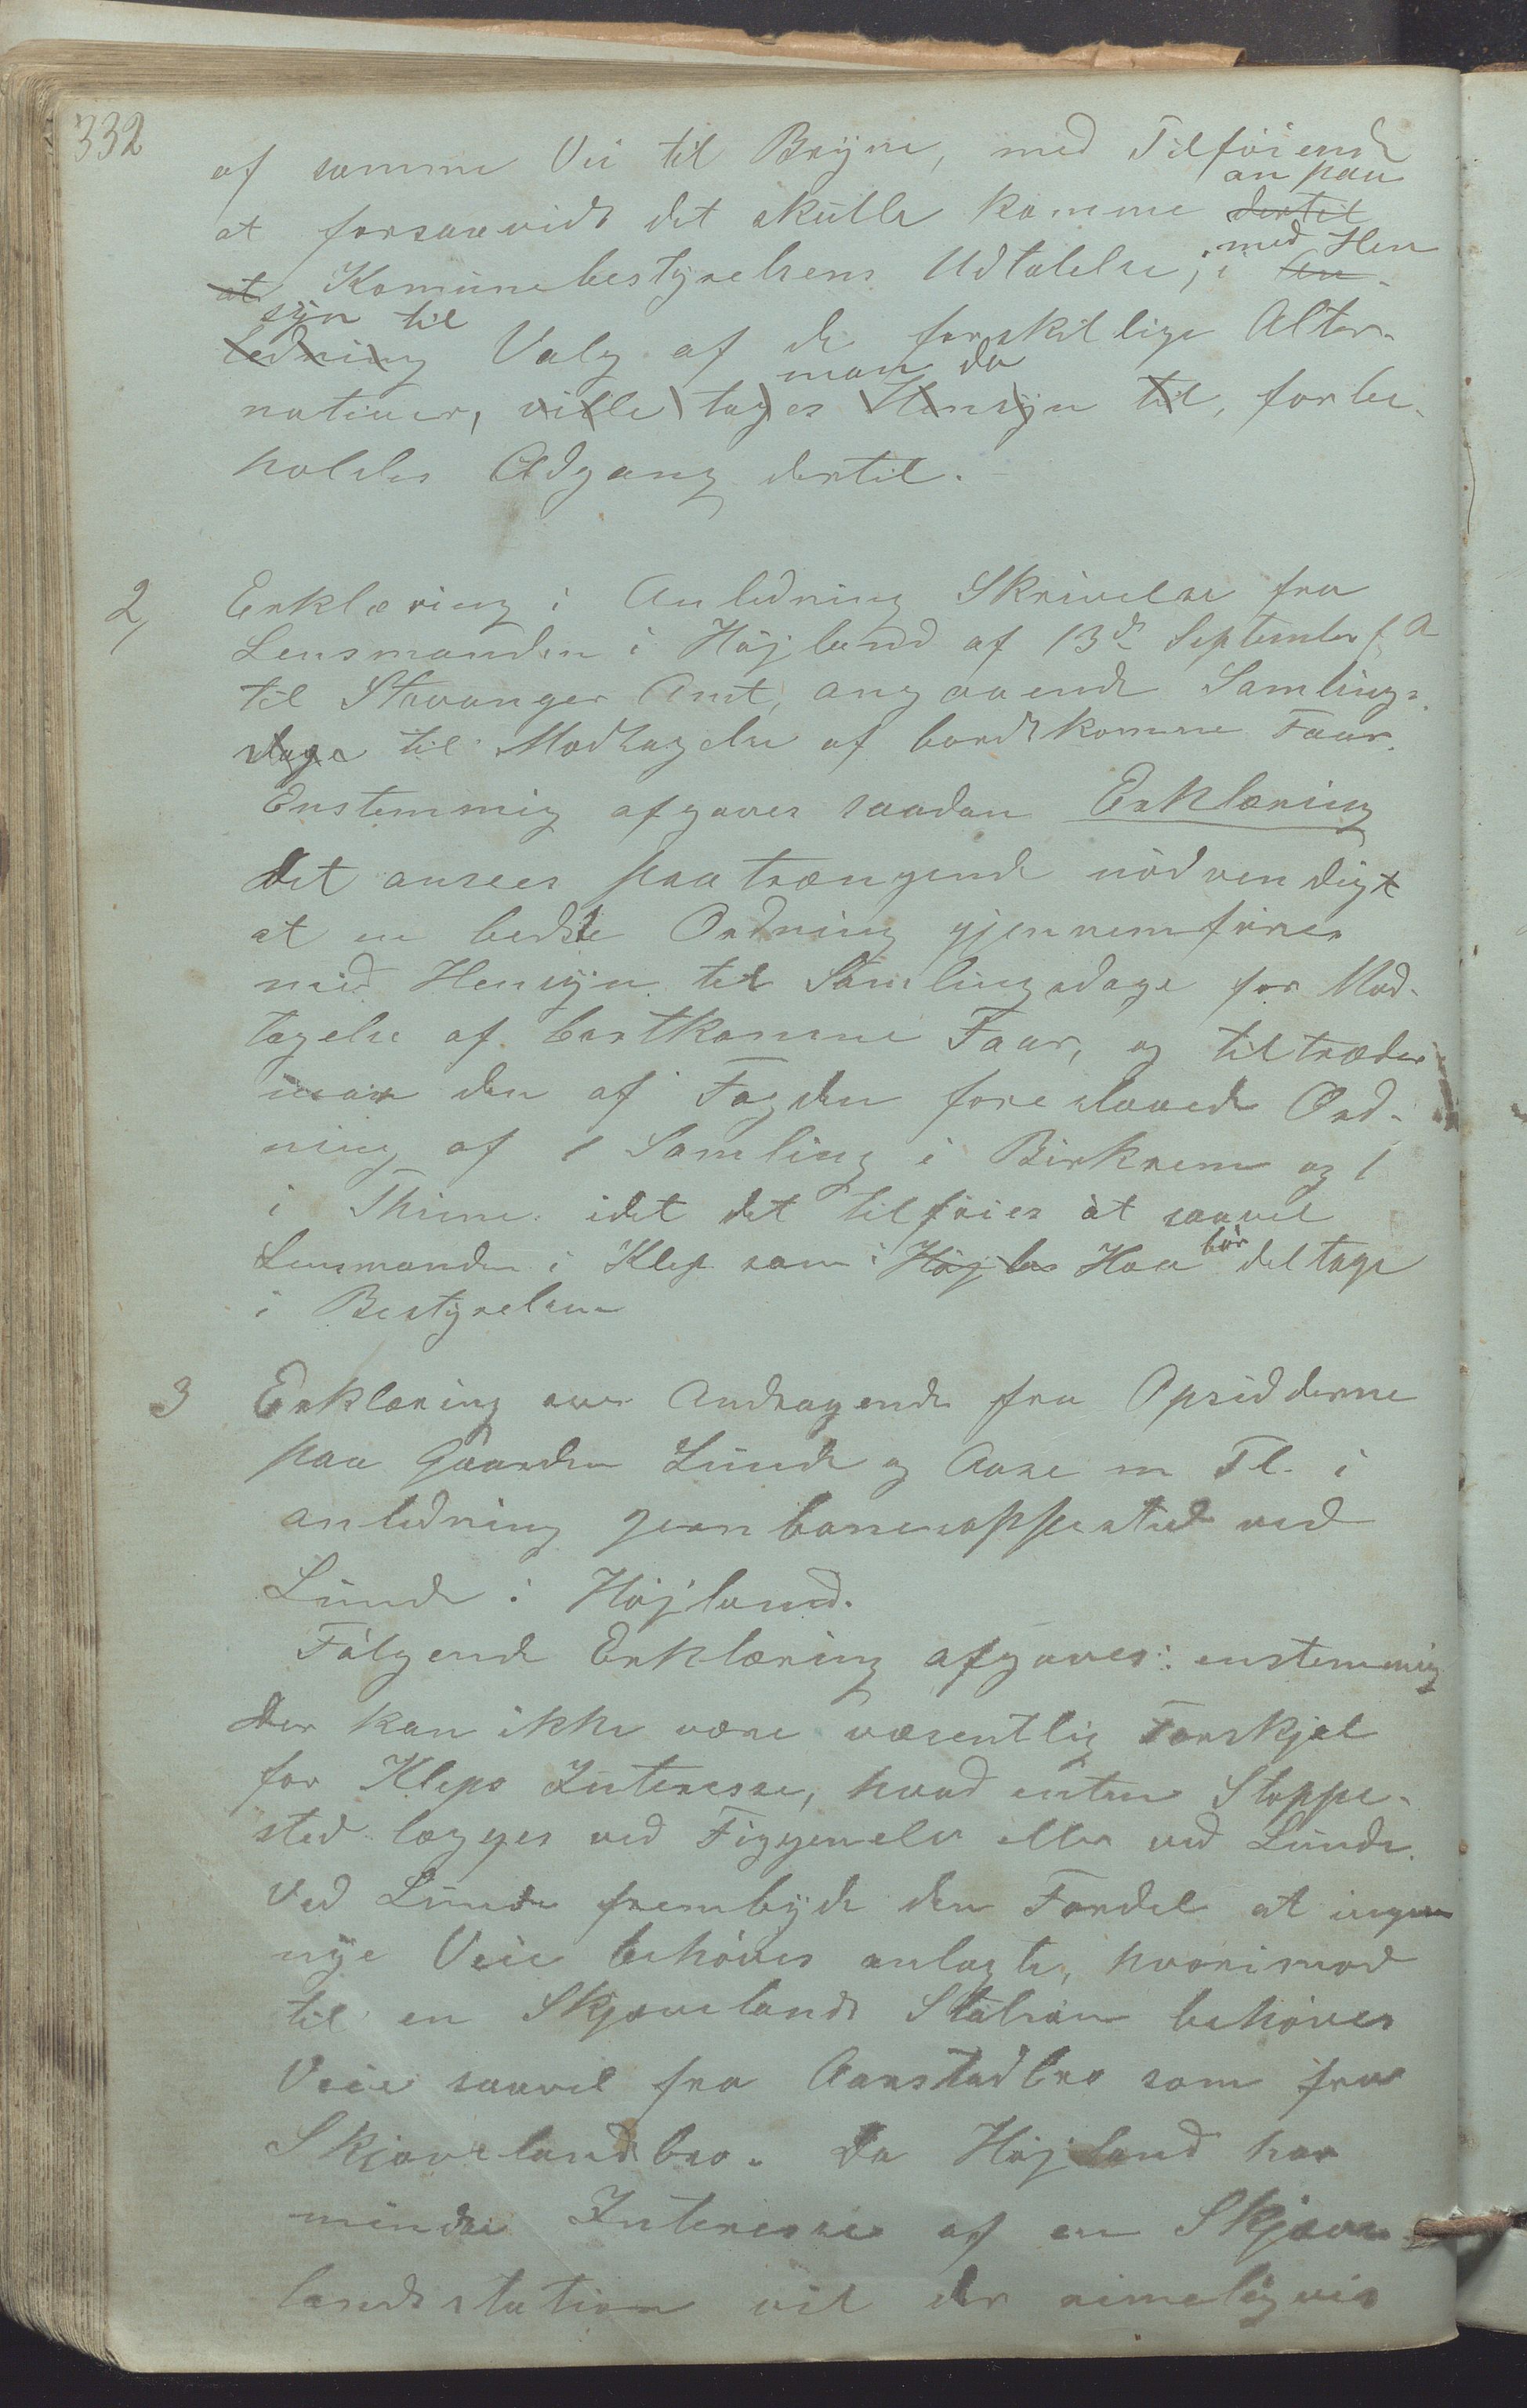 332
af samme Vei til Bryne, med Tilføiende
an paa
at forsaavidt det skulle komme dertil
med Hen
at Komunebestyrelsens Udtalelse, i An-
syn til
ledning Valg af de forskillige Alter-
man da
nativer, ville tages Hensyn til, forbe-
holdes Adgang dertil.
2, Erklæring i Anledning Skrivelse fra
Lensmanden i Höjland af 13de September f A
til Stavanger Amt, angaaende Samlings-
dage til Modtagelse af bordtkomne Faar.
Enstemmig afgaves saadan Erklæring
det ansees paatrængende nödvendigt
at en bedre Ordning gjennemföres
med Hensyn til Samlingsdage for Mod-
tagelse af bortkomne Faar, og tiltræder
man den af Fogden foreslaaede Ord-
ning af 1 Samling i Birkrem og 1
i Thime. idet det tilföies at saavel
bör
Lensmanden i Klep som i Höjla Haa deltage
i Bestyrelsen
3 Erklæring over Andragende fra Opsidderne
paa Gaarden Lunde og Aase m Fl. i
anledning Jernbanestoppested ved
Lunde i Höjland.
Fölgende Erklæring afgaves: enstemmig
Der kan ikke være væsentlig Forskjel
for Kleps Interesse, hvad enten Stoppe-
sted lægges ved Figgenelv eller ved Lunde.
Ved Lunde frembyde den Fordel at ingen
nye Veie behöves anlagte, hvorimod
til en Skjævelands Station behöves
Veie saavel fra Aarstadbro som fra
Skjævelandsbro. Da Höjland har
mindre Interesse af en Skjæve-
landsstation vil der rimeligvis